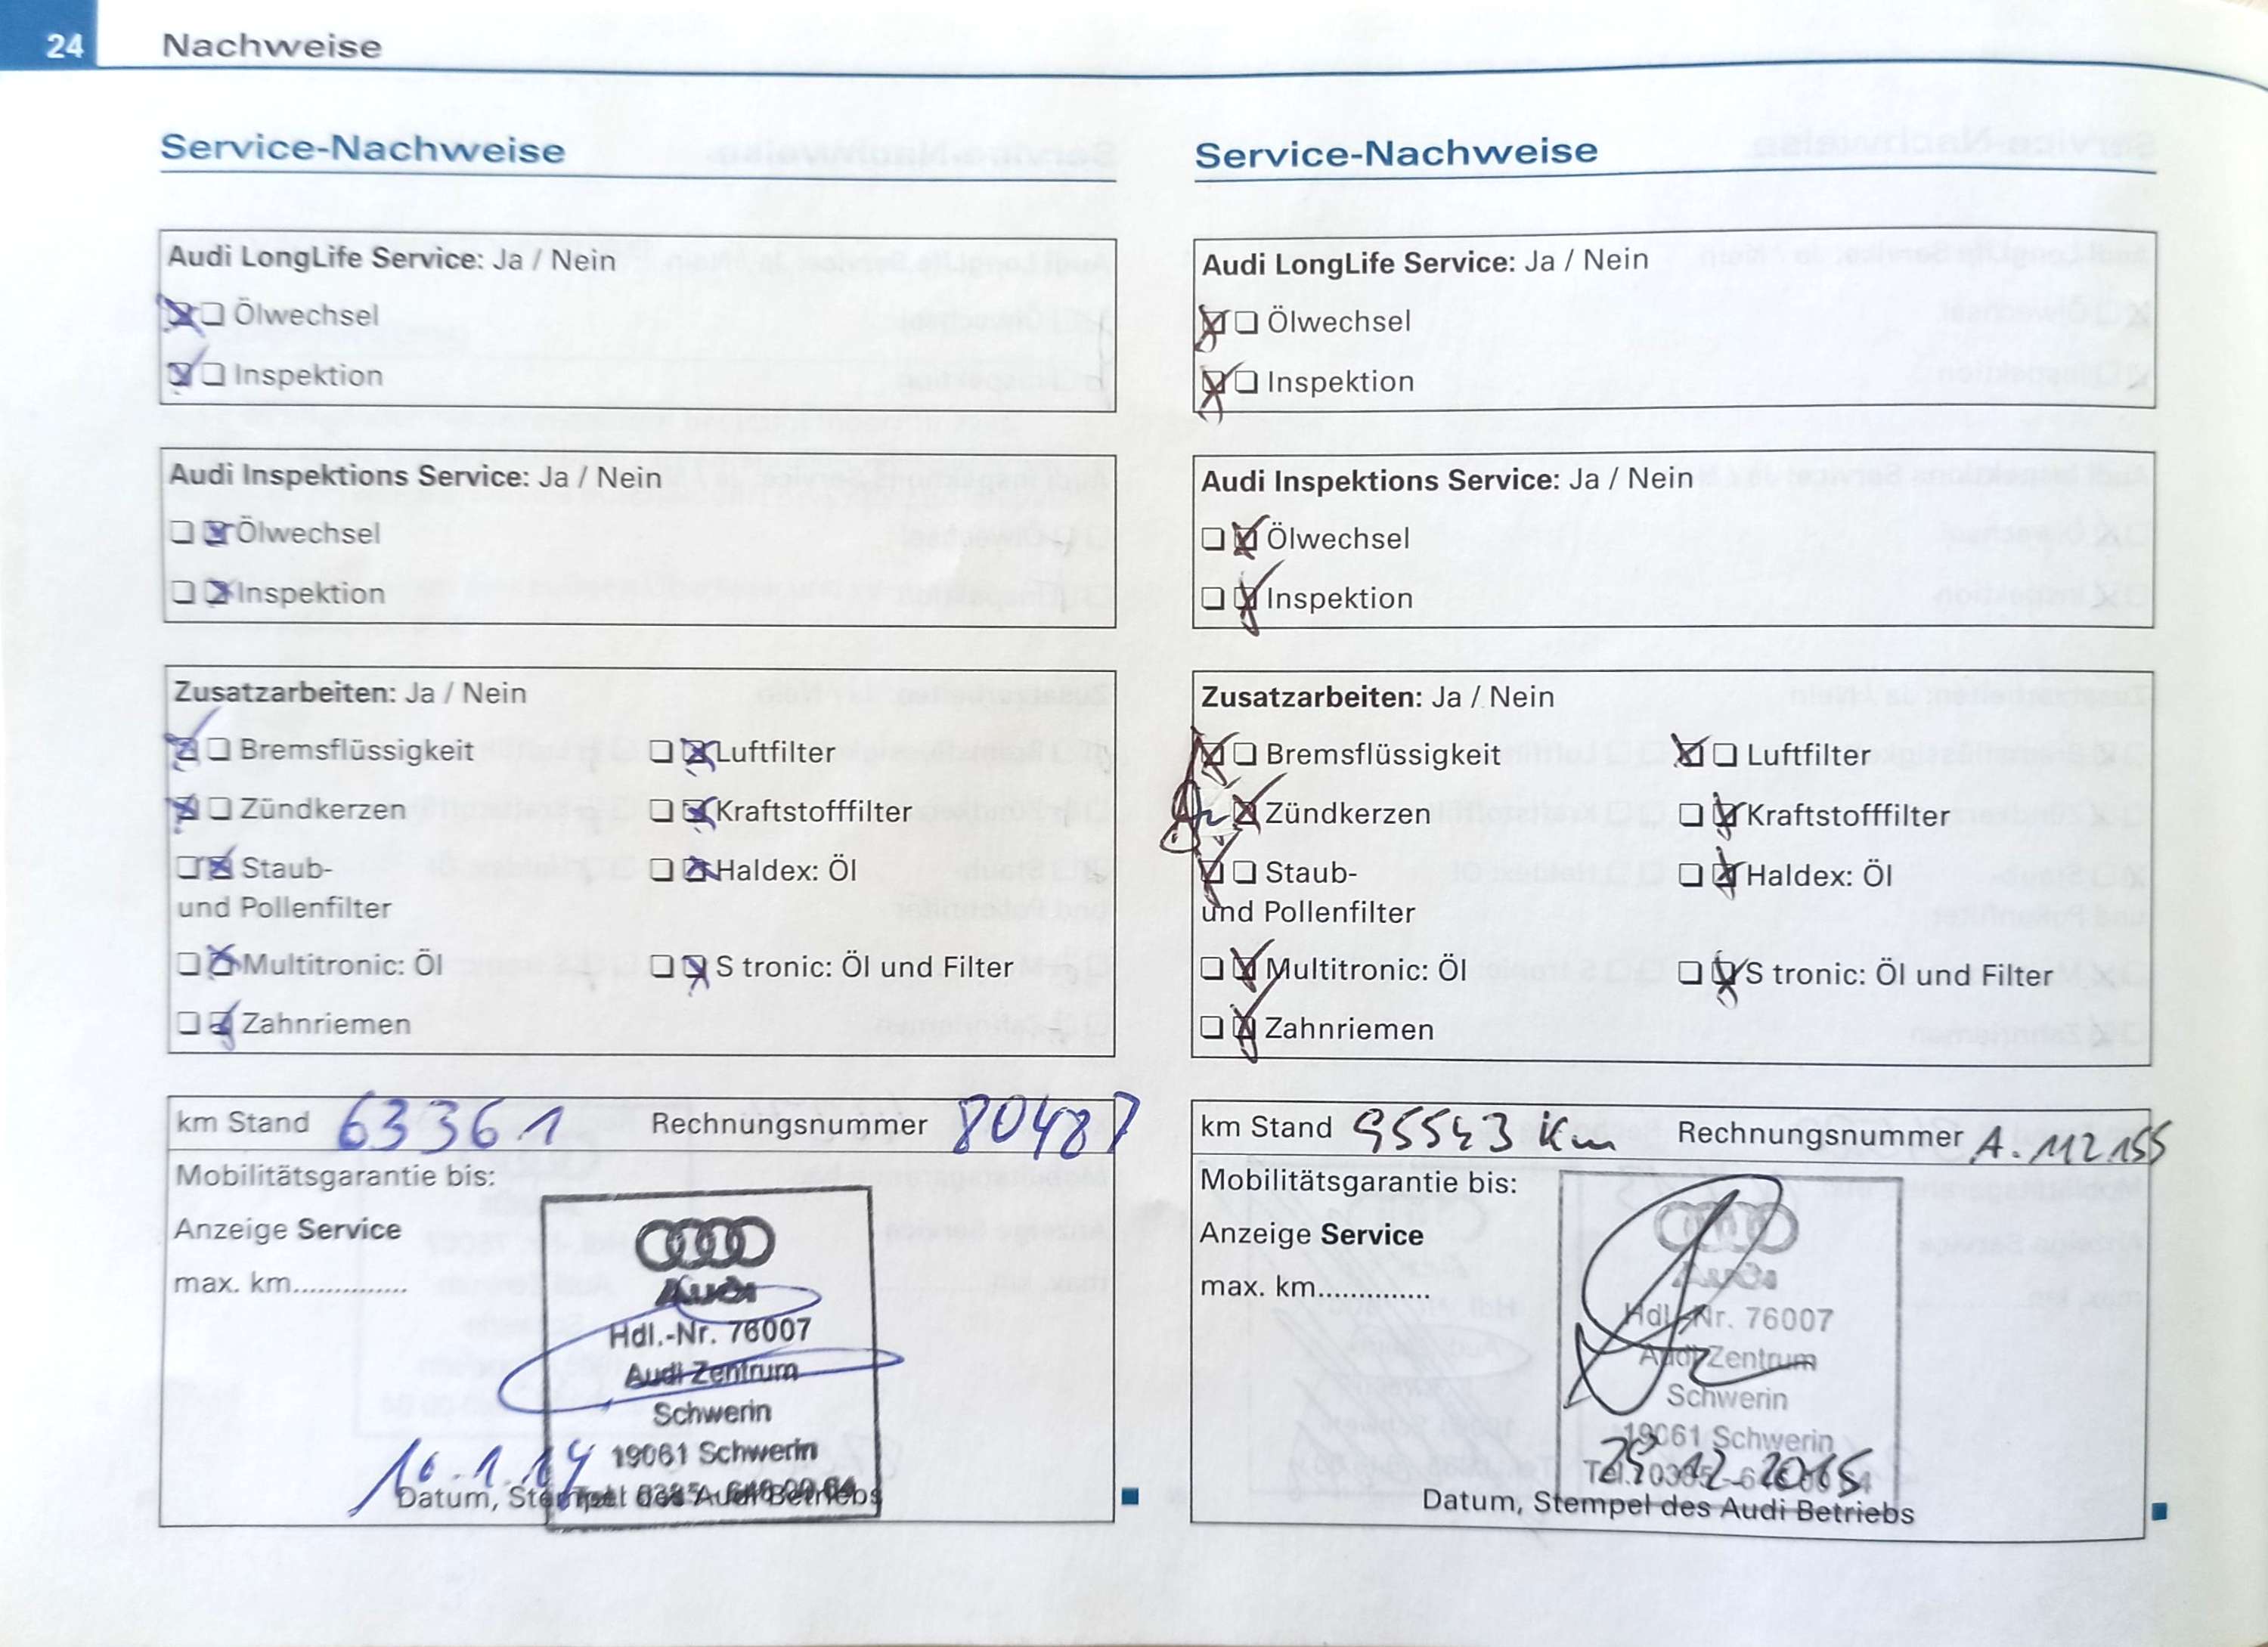 24 Nachweise
Service-Nachweise
Audi LongLife Service: Ja / Nein
Ölwechsel
Inspektion
Audi Inspektions Service: Ja / Nein
Ölwechsel
Inspektion
Zusatzarbeiten: Ja / Nein
Bremsflüssigkeit Luftfilter
Zündkerzen Kraftstofffilter
Staub- Haldex: Öl
und Pollenfilter
Multitronic: Öl S tronic: Öl und Filter
Zahnriemen
km Stand 63361 Rechnungsnummer 80487
Mobilitätsgarantie bis:
Anzeige Service
max. km..............
Audi
Hdl.-Nr. 76007
Audi Zentrum
Schwerin
19061 Schwerin
16.1.14
Tel. 0385 - 646 00 64
Datum, Stempel des Audi Betriebs
Service-Nachweise
Audi LongLife Service: Ja / Nein
Ölwechsel
Inspektion
Audi Inspektions Service: Ja / Nein
Ölwechsel
Inspektion
Zusatzarbeiten: Ja / Nein
Bremsflüssigkeit Luftfilter
Zündkerzen Kraftstofffilter
Staub- Haldex: Öl
und Pollenfilter
Multitronic: Öl S tronic: Öl und Filter
Zahnriemen
km Stand 95543 Km Rechnungsnummer A.112155
Mobilitätsgarantie bis:
Anzeige Service
max. km..............
Audi
Hdl.-Nr. 76007
Audi Zentrum
Schwerin
19061 Schwerin
Tel. 0385 - 646 00 64
Datum, Stempel des Audi Betriebs